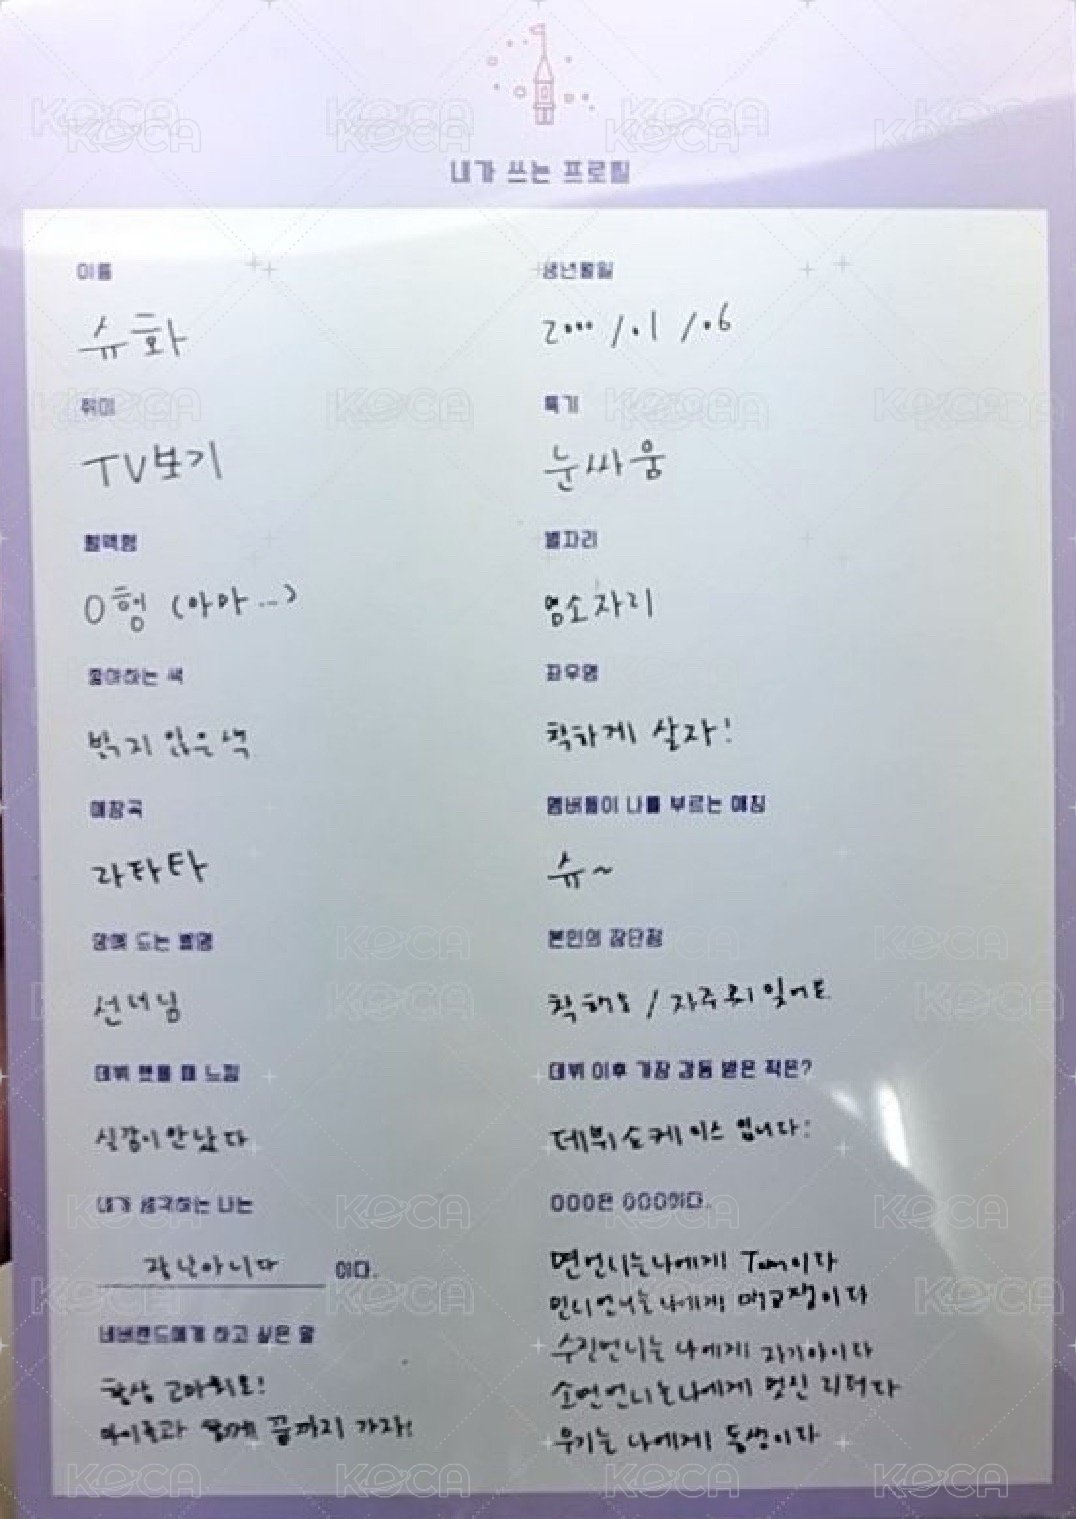 내가 쓰는 프로필
이름
슈화
생년월일
2000 / 01 / 06
취미
TV보기
특기
눈싸움
혈액형
O형 (아마...)
별자리
염소자리
좋아하는 색
밝지 않은 색
좌우명
착하게 살자!
애창곡
라타타
멤버들이 나를 부르는 애칭
슈~
맘에 드는 별명
선녀님
본인의 장단점
착해요 / 자주 잊어요
데뷔 했을 때 느낌
실감이 안 났다
데뷔 이후 가장 감동 받은 적은?
데뷔 쇼케이스 입니다!
내가 생각하는 나는
장난아니다 이다.
OOO은 OOO이다.
면언니는 나에게 Tom이다
민니언니는 나에게 애교쟁이다
수진언니는 나에게 자기야이다
소연언니는 나에게 멋진 리더다
우기는 나에게 동생이다
네버랜드에게 하고 싶은 말
항상 고마워요!
아이들과 함께 끝까지 가자!
KOCA